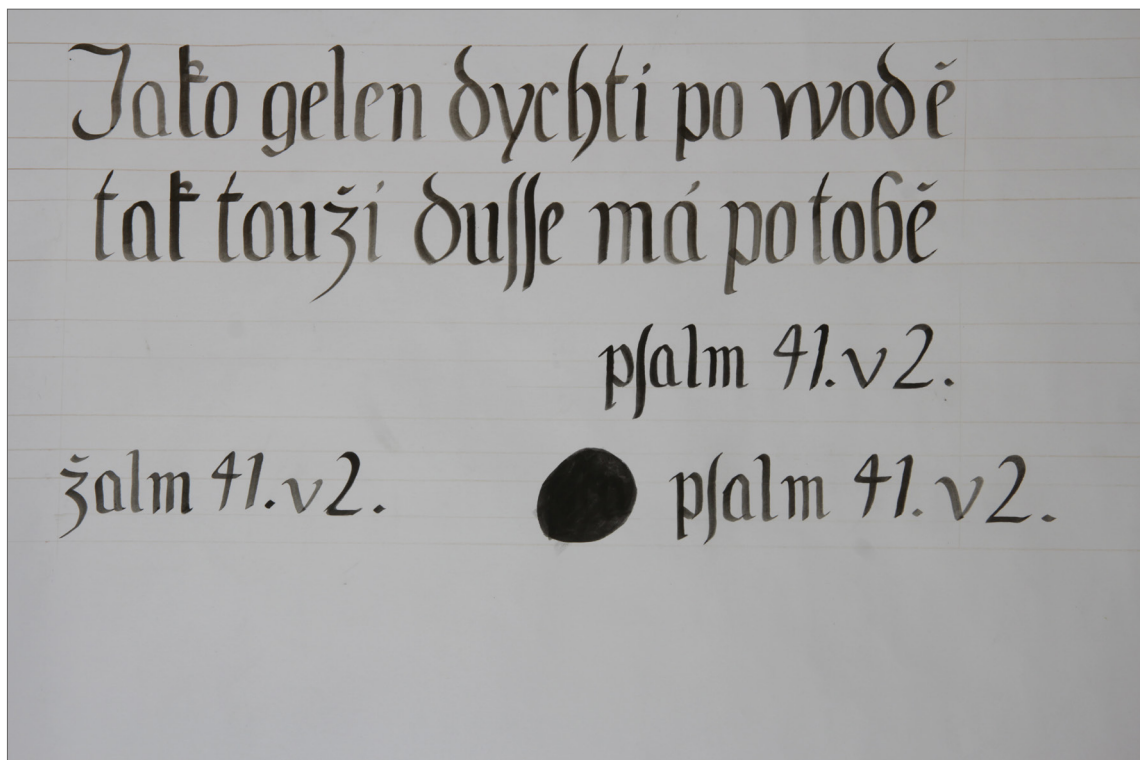 Jako gelen dychti po wodě
tak touži duſſe má po tobě
pſalm 41. v 2.
žalm 41. v 2.
pſalm 41. v 2.